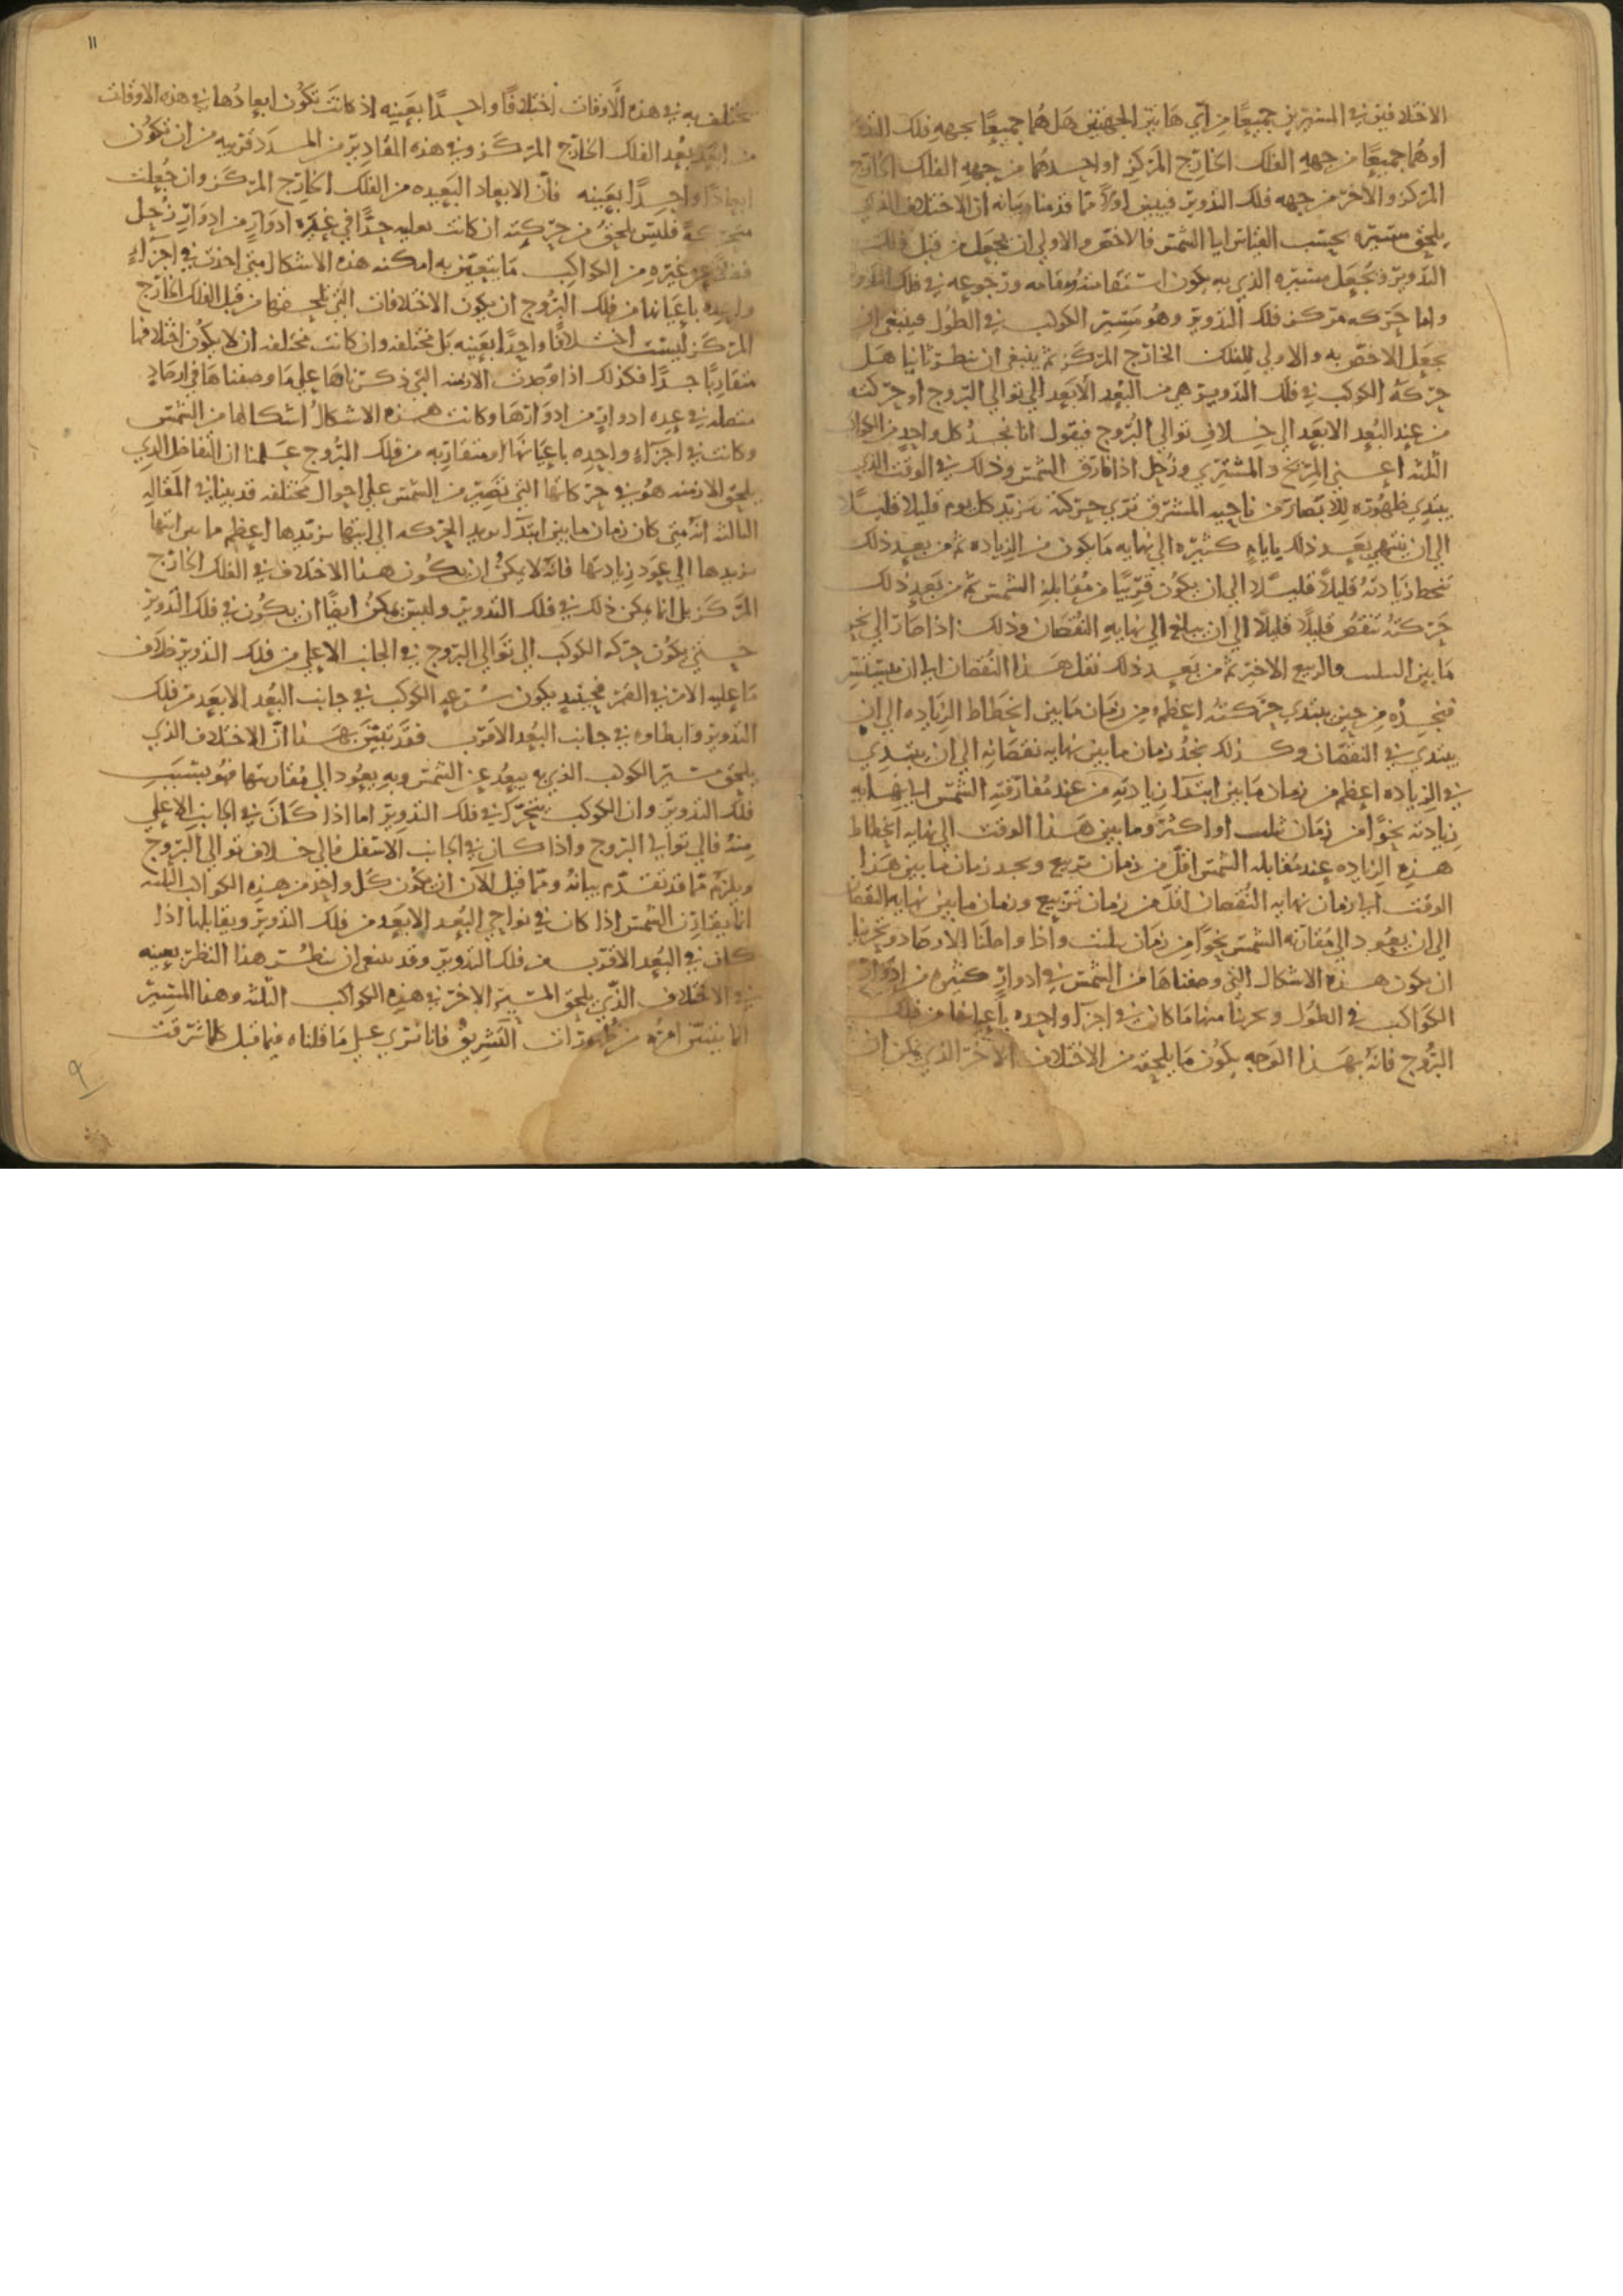 الاختلافين في المسيرين جميعًا من اي هاتين الجهتين هل هما جميعًا بجهه فلك
او هما جميعًا من جهه الفلك الخارج المركز او احدهما من جهه الفلك الخارج
المركز والاخر من جهه فلك التدوير فيبين اولًا مما قدمنا بيانه ان الاختلاف الذي
يلحق مسيره بحسب القياس الى الشمس فالاخص والاولى ان يجعل من قبل فلك
التدوير فيجعل مسيره الذي به يكون استقامته ومقامه ورجوعه في فلك التدوير
واما حركه مركز فلك التدوير وهو مسير الكوكب في الطول فينبغي ان
يجعل الاخص به والاولى للفلك الخارج المركز ثم ينبغي ان ننظر ثانيا هل
حركة الكوكب في فلك التدوير هي من البعد الابعد الي توالي البروج او حركته
من عند البعد الابعد الي خلاف توالي البروج فيقول انا نجد كل واحد من الكواكب
الثلثه اعني المريخ والمشتري وزحل اذا فارق الشمس وذلك في الوقت الذي
يبتدي ظهوره للابصار من ناحيه المشرق نري حركته تتزيد كل يوم قليلا قليلًا
الي ان ينتهي بعد ذلك بايام كثيره الي نهايه ما يكون من الزياده ثم من بعد ذلك
تنحط زيادته قليلًا قليلًا الي ان يكون قريبًا من مقابلة الشمس ثم من بعد ذلك
حركته تنقص قليلًا قليلًا الي ان يبلغ الي نهايه النقصان وذلك اذا صار الي نحو
ما بين الثلث والربع الاخير ثم من بعد ذلك نقل هذا النقصان الي ان يستتر
فنجده من حين يبتدي حركته اعظم من زمان ما بين انحطاط الزياده الي ان
يبتدي في النقصان وكذلك نجد زمان ما بين نهايه نقصانه الي ان يبتدي
في الزياده اعظم من زمان ما بين ابتدا زيادته من عند مفارقته الشمس الي نهايه
زيادته نحوًا من زمان ثلث او اكثر وما بين هذا الوقت الي نهايه انحطاط
هذه الزياده عند مقابله الشمس اقل من زمان تربيع ونجد زمان ما بين هذا
الوقت الي زمان نهايه النقصان اقل من زمان تربيع وزمان ما بين نهايه النقصان
الي ان يعود الي مقارنه الشمس نحوًا من زمان ثلث واذا واصلنا الارصاد وتحرينا
ان يكون هذه الاشكال التي وصفناها من الشمس في ادوار كثيره من ادوار
الكواكب في الطول وتحرينا منها ما كان في اجزا واحده باعيانها من فلك
البروج فانه بهذا الوجه يكون ما يلحقه من الاختلاف الاخر الذي يمكن ان
يختلف به في هذه الاوقات اختلافًا واحدًا بعينه اذ كانت تكون ابعادها في هذه الاوقات
من ابعد بعد الفلك الخارج المركز وفي هذه المقادير من المدد قريبه من ان تكون
ابعادًا واحدًا بعينه فان الابعاد البعيده من الفلك الخارج المركز وان جعلت
متحركة فليس يلحق من حركته ان كانت بطيه جدًا في عده ادوار من ادوار زحل
فضلًا عن غيره من الكواكب ما يتعين به امكنه هذه الاشكال متى اخذت في اجزاء
واحده باعيانها من فلك البروج ان يكون الاختلافات التي تلحقها من قبل الفلك الخارج
المركز ليست اختلافًا واحدًا بعينه بل مختلفه وان كانت مختلفه ان لا يكون اختلافها
متقاربًا جدًا فكذلك اذا وجدت الازمنه التي ذكرناها على ما وصفناها في ارصاد
متصله في عده ادوار من ادوارها وكانت هذه الاشكال اشكالها من الشمس
وكانت في اجزاء واحده باعيانها او متقاربه من فلك البروج علمنا ان التفاضل الذي
يلحق الازمنه هو في حركاتها التي تصير من الشمس على احوال مختلفه قد بينا في المقاله
الثالثه انه متى كان زمان ما بين ابتدآ تزيد الحركه الي انتها تزيدها اعظم ما بين انتها
تزيدها الي عود زيادتها فانه لا يمكن ان يكون هذا الاختلاف في الفلك الخارج
المركز بل انما يمكن ذلك في فلك التدوير وليس يمكن ايضًا ان يكون في فلك التدوير
حتى يكون حركه الكوكب الي توالي البروج في الجانب الاعلي من فلك التدوير خلاف
ما عليه الامر في القمر فحينيذ يكون سرعه الكوكب في جانب البعد الابعد من فلك
التدوير وابطاوه في جانب البعد الاقرب فقد تبين بهذا ان الاختلاف الذي
يلحق مسير الكوكب الذي به يبعد عن الشمس وبه يعود الي مقارنتها فهو بسبب
فلك التدوير وان الكوكب يتحرك في فلك التدوير اما اذا كان في الجانب الاعلي
منه فالي توالي البروج واذا كان في الجانب الاسفل فالي خلاف توالي البروج
ويلزم مما قد تقدم بيانه ومما قيل الان ان يكون كل واحد من هذه الكواكب الثلثه
انما يقارن الشمس اذا كان في نواحي البعد الابعد من فلك التدوير ويقابلها اذا
كان في البعد الاقرب من فلك التدوير وقد ينبغي ان ننظر هذا النظر بعينه
في الاختلاف الذي يلحق المسير الاخر في هذه الكواكب الثلثه وهذا المسير
انما يتبين امره من ظهورات التشريق فانا نري على ما قلناه فيما قبل كلما شرقت
١١
٩